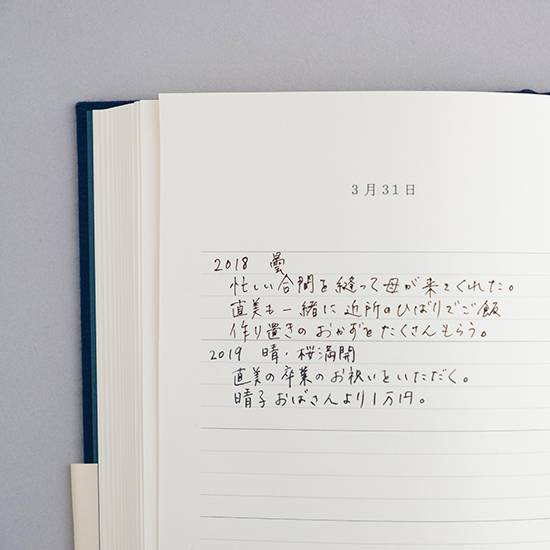 3月31日
2018 曇
忙しい合間を縫って母が来てくれた。
直美も一緒に近所のひばりでご飯
作り置きのおかずをたくさんもらう。
2019 晴・桜満開
直美の卒業のお祝いをいただく。
晴子おばさんより1万円。